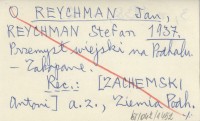 O REYCHMAN Jan,
REYCHMAN Stefan 1937.
Przemysł wiejski na Podhalu
- Zakopane.
Rec.: [ZACHEMSKI
Antoni] a.z., Ziemia Podh.